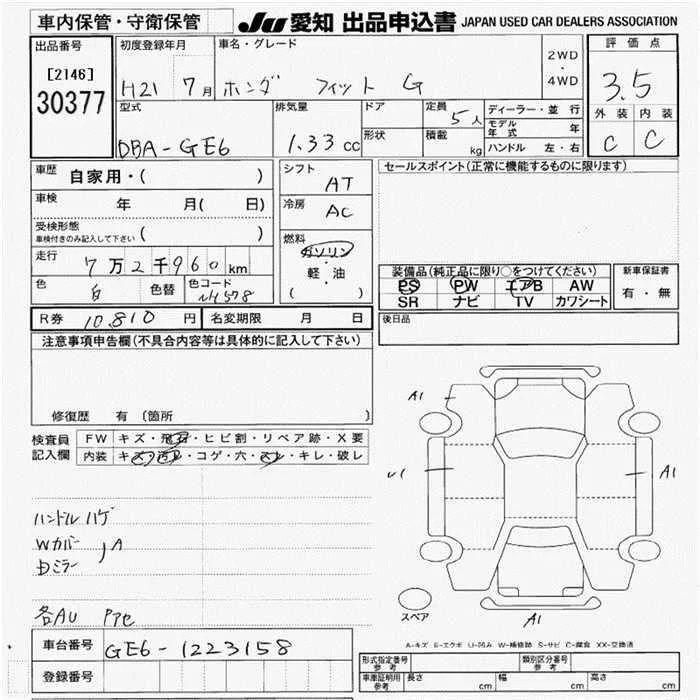 車内保管・守衛保管
JU 愛知 出品申込書 JAPAN USED CAR DEALERS ASSOCIATION
出品番号
[2146]
30377
初度登録年月
H21 7月
車名・グレード
ホンダ フィット G
2WD
・
4WD
評価点
3.5
外装 内装
C C
型式
DBA-GE6
排気量
1.33 cc
ドア
形状
定員
5人
積載
kg
ディーラー・並行
モデル年式 年
ハンドル 左・右
車歴 自家用・( )
車検 年 月( 日)
受検形態
車検付きのみ記入して下さい ( )
走行 7万2千960km
色 白 色替 色コード NH578
シフト
AT
冷房
AC
燃料
ガソリン
・
軽・油
( )
セールスポイント(正常に機能するものに限ります)
装備品(純正品に限り○をつけてください)
PS PW エアB AW
SR ナビ TV カワシート
新車保証書
有・無
R券 10,810 円 名変期限 月 日
後日品
注意事項申告欄(不具合内容等は具体的に記入して下さい)
修復歴 有 〔箇所 〕
検査員
記入欄
FW キズ・飛石・ヒビ割・リペア跡・X要
内装 キズ・汚レ・コゲ・穴・スレ・キレ・破レ
ハンドルハゲ
Wカバー
Dミラー
A
各AU Pアセ
A1
A1
A1
スペア
A-キズ E-エクボ U-凹み W-補修跡 S-サビ C-腐食 XX-交換済
車台番号 GE6-1223158
登録番号
形式指定番号
参考
類別区分番号
参考
車庫証明用
参考
長さ cm 幅 cm 高さ cm